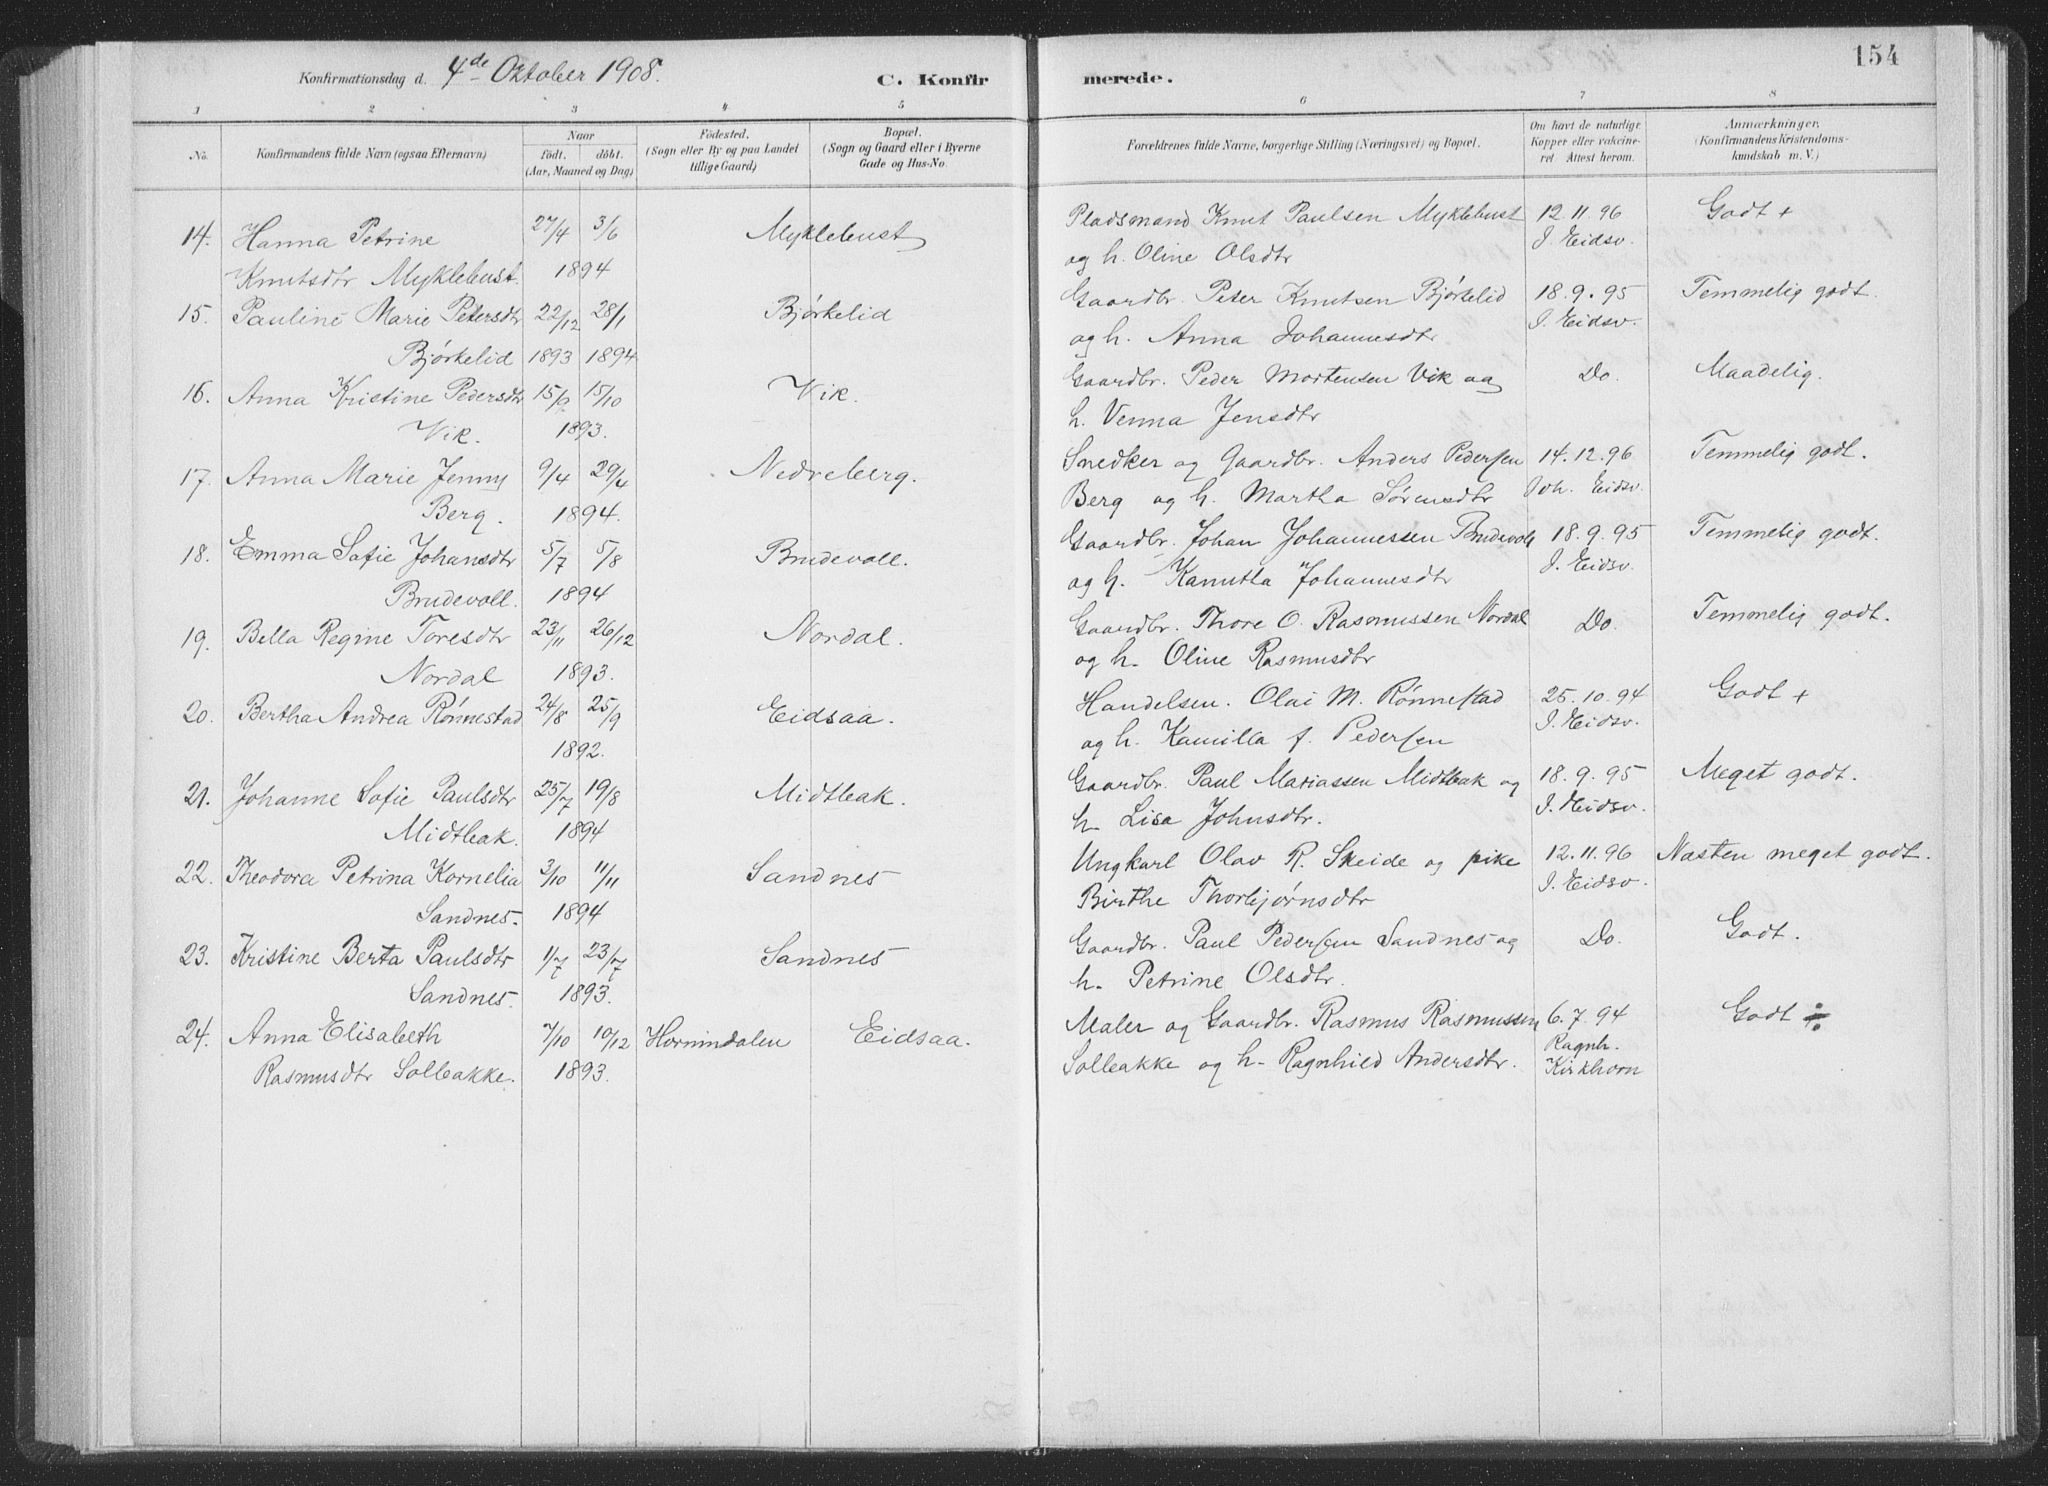 154
Konfirmationsdag d. 4de Oktober 1908.
C. Konfirmerede.
1 2 3 4 5 6 7 8
No.
Konfirmandens fulde Navn (ogsaa Efternavn)
Naar
födt. döbt.
(Aar, Maaned og Dag)
Födested.
(Sogn eller By og paa Landet
tillige Gaard)
Bopæl.
(Sogn og Gaard eller i Byerne
Gade og Hus-No.
Forældrenes fulde Navne, borgerlige Stilling (Næringsvei) og Bopæl.
Om havt de naturlige
Kopper eller vakcine-
ret Attest herom.
Anmærkninger.
(Konfirmandens Kristendoms-
kundskab m. V.)
14. Hanna Petrine 27/4 3/6 Myklebust Pladsmand Knut Paulsen Myklebust 12.11.96 Godt +
Knutsdtr Myklebust. 1894 og h. Oline Olsdtr J. Eidsv.
15. Pauline Marie Petersdtr 22/12 28/1 Bjørkelid Gaardbr. Peter Knutsen Bjørkelid 18.9.95 Temmelig godt.
Bjørkelid 1893 1894 og h. Anna Johannesdtr J. Eidsv.
16. Anna Kristine Pedersdtr 15/9 15/10 Vik. Gaardbr. Peder Mortensen Vik og Do. Maadelig.
Vik. 1893. h. Venna Jensdtr
17. Anna Marie Jenny 9/4 29/4 Nedreberg. Snedker og Gaardbr. Anders Pedersen 14.12.96 Temmelig godt.
Berg. 1894. Berg og h. Martha Sørensdtr Joh. Eidsv.
18. Emma Sofie Johansdtr 5/7 5/8 Brudevoll. Gaardbr. Johan Johannessen Brudevoll 18.9.95 Temmelig godt.
Brudevoll. 1894 og h. Kanutta Johannesdtr J. Eidsv.
19. Bella Regine Toresdtr 23/11 26/12 Nordal. Gaardbr. Thore O. Rasmussen Nordal Do. Temmelig godt.
Nordal 1893. og h. Oline Rasmusdtr
20. Bertha Andrea Rönnestad 24/8 25/9 Eidsaa. Handelsen. Olai M. Rönnestad 25.10.94 Godt +
1892. og h. Kamilla f. Pedersen J. Eidsv.
21. Johanne Sofie Paulsdtr 25/7 19/8 Midtleak. Gaardbr. Paul Mariassen Midtleak og 18.9.95 Meget godt.
Midtleak. 1894 h. Lisa Johnsdtr. J. Eidsv.
22. Theodora Petrina Kornelia 3/10 11/11 Sandnes Ungkarl Olav R. Skeide og pike 12.11.96 Næsten meget godt.
Sandnes. 1894 Birthe Thorbjørnsdtr J. Eidsv.
23. Kristine Berta Paulsdtr 1/7 23/7 Sandnes Gaardbr. Paul Pedersen Sandnes og Do. Godt.
Sandnes. 1893. h. Petrine Olsdtr.
24. Anna Elisabeth 7/10 10/12 Hornindalen Eidsaa. Maler og Gaardbr. Rasmus Rasmussen 6.7.94 Godt ÷
Rasmusdtr Solbakke. 1893. Solbakke og h. Ragnhild Andersdtr. Ragnh.
Kirkhorn